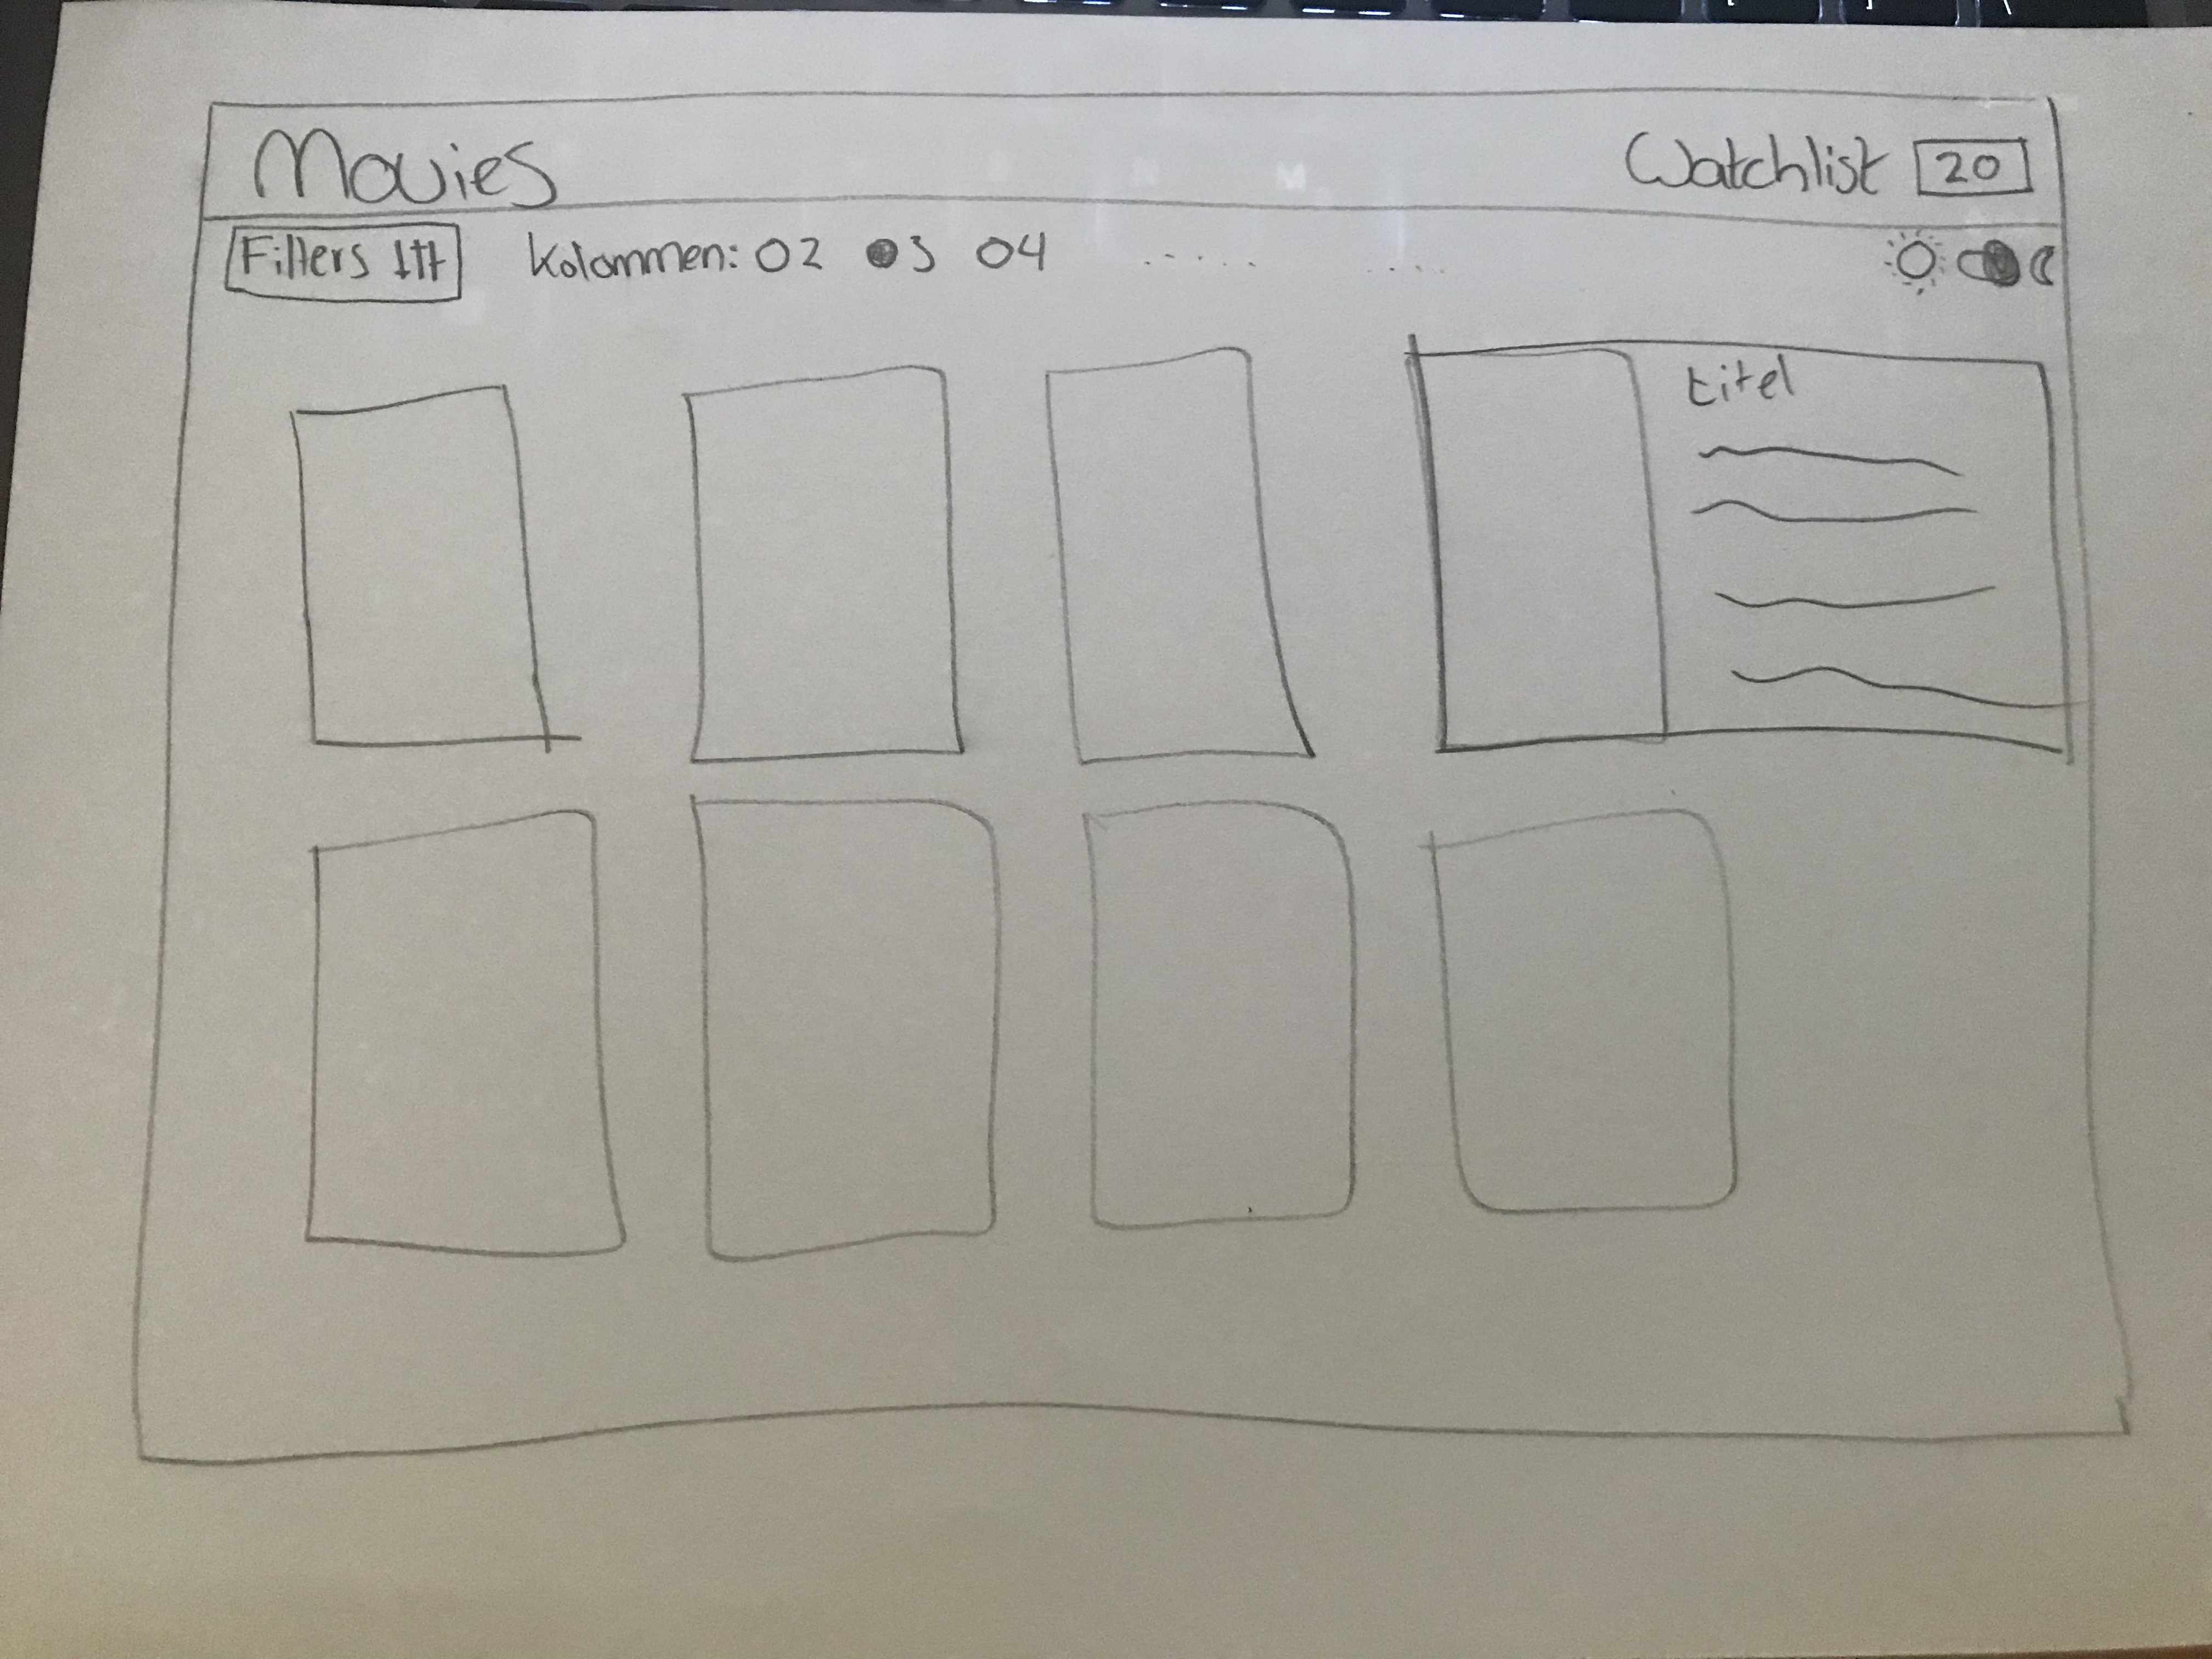 Movies Watchlist 20
Filters Kolommen: O2 ●3 O4
titel